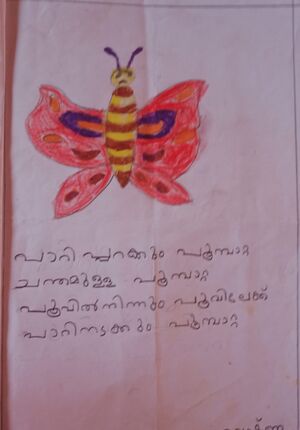 പാറി പ്പറക്കും പൂമ്പാറ്റ
ചന്തമുള്ള പൂമ്പാറ്റ
പൂവിൽനിന്നും പൂവിലേക്ക്
പാറിനടക്കും പൂമ്പാറ്റ